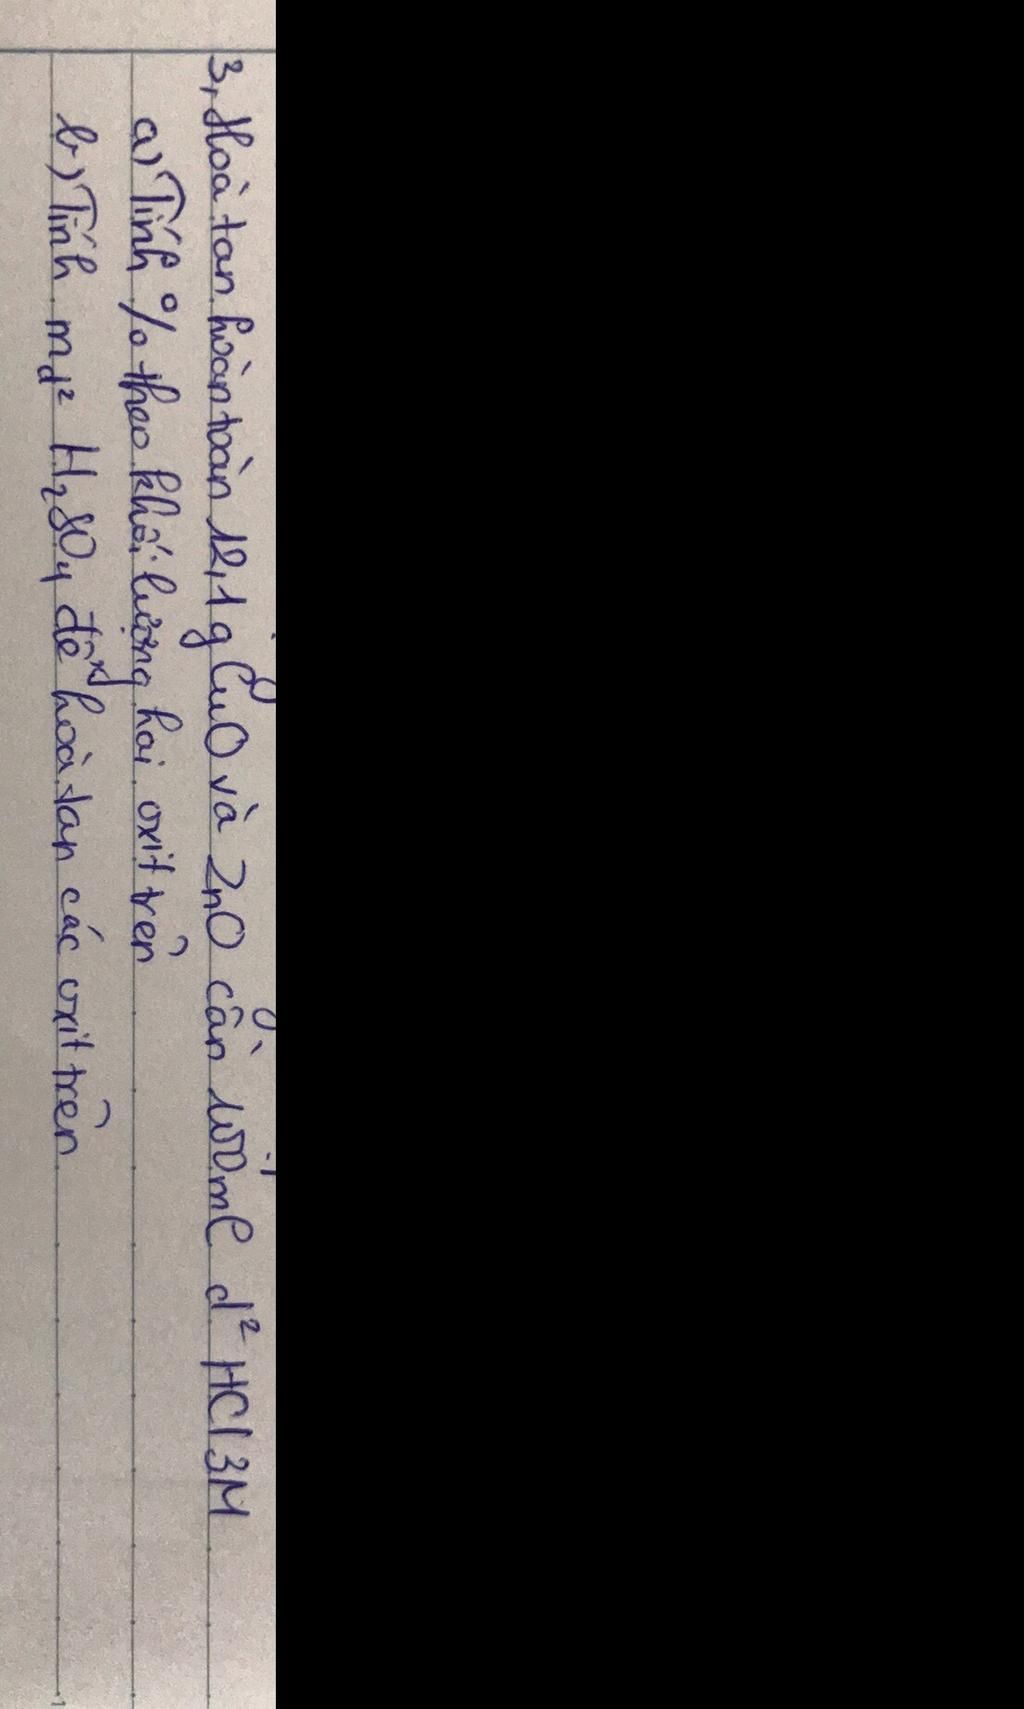 3, Hoà tan hoàn toàn 12,1g CuO và ZnO cần 100ml d² HCl 3M
a) Tính % theo khối lượng hai oxit trên
b) Tính m d² H₂SO₄ để hoà tan các oxit trên